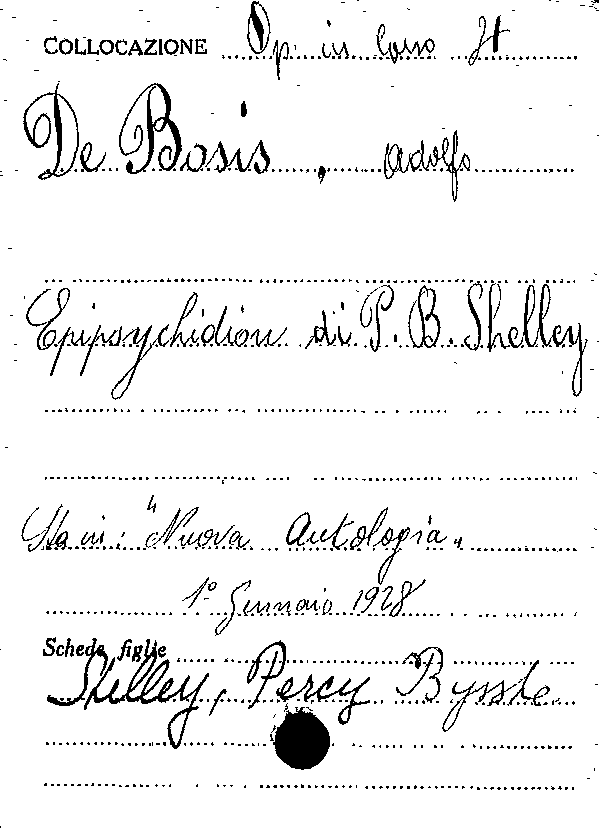 COLLOCAZIONE Op. in Corso It
De Bosis, Adolfo
Epipsychidion di P. B. Shelley
Sta in: "Nuova Antologia"
1° Gennaio 1928
Schede figlie
Shelley, Percy Bysshe